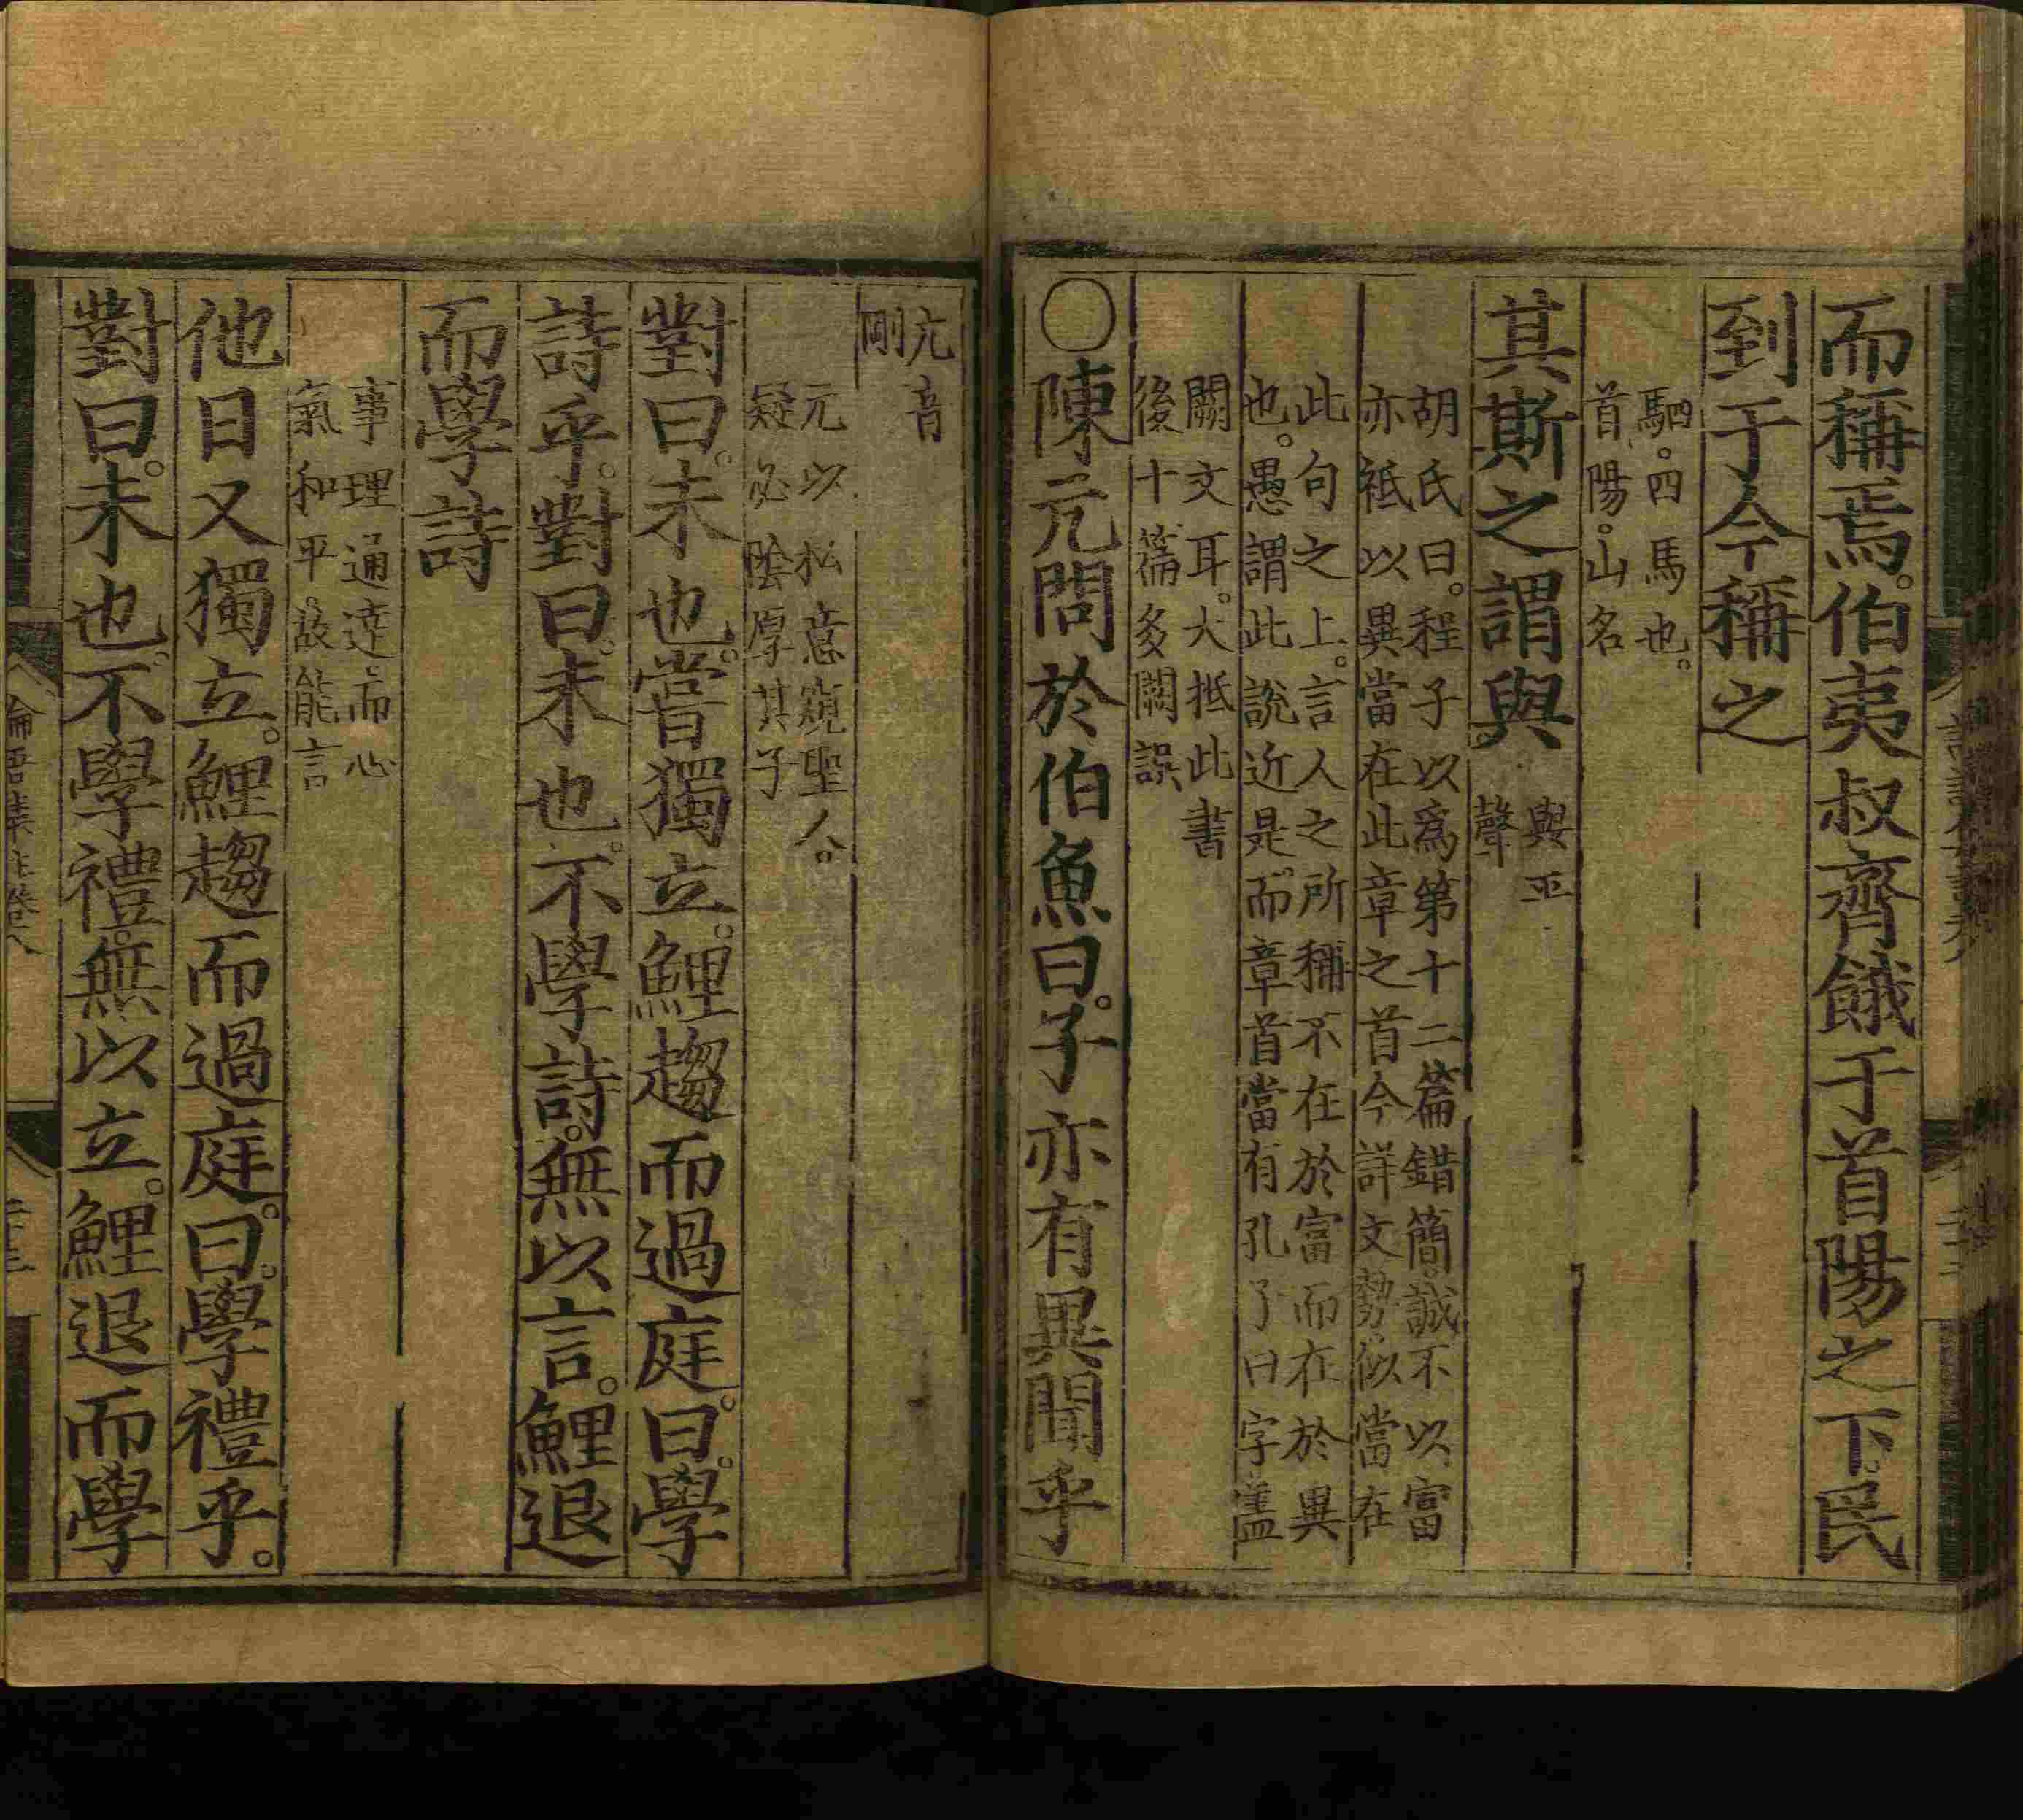 而稱焉。伯夷叔齊餓于首陽之下。民
到于今稱之
駟。四馬也。
首陽。山名
其斯之謂與
與平
聲
胡氏曰。程子以爲第十二篇錯簡。誠不以富
亦祗以異當在此章之首今詳文勢。似當在
此句之上。言人之所稱不在於富而在於異
也。愚謂此說近是。而章首當有孔子曰字蓋
闕文耳。大抵此書
後十篇多闕誤
○陳亢問於伯魚曰。子亦有異聞乎
亢音
剛
亢以私意窺聖人。
疑必陰厚其子
對曰。未也。嘗獨立。鯉趨而過庭。曰。學
詩乎。對曰。未也。不學詩。無以言。鯉退
而學詩
事理通達。而心
氣和平。故能言
他日又獨立。鯉趨而過庭。曰。學禮乎。
對曰。未也。不學禮。無以立。鯉退而學